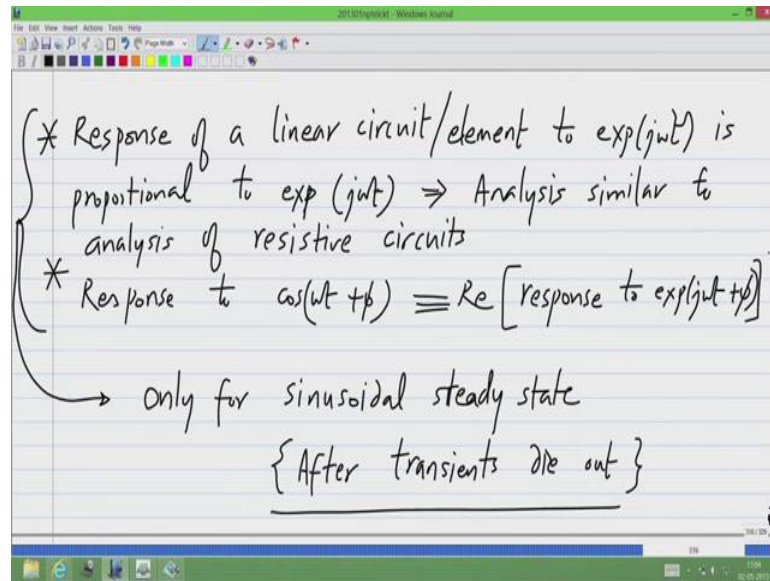 201301nptelckt - Windows Journal
File Edit View Insert Actions Tools Help
Page Width
B I
* Response of a linear circuit/element to exp(jωt) is
proportional to exp (jωt) ⇒ Analysis similar to
analysis of resistive circuits
* Response to cos(ωt +φ) ≡ Re [response to exp(jωt +φ)]
→ only for sinusoidal steady state
{After transients die out}
316
17:04
02-05-2013